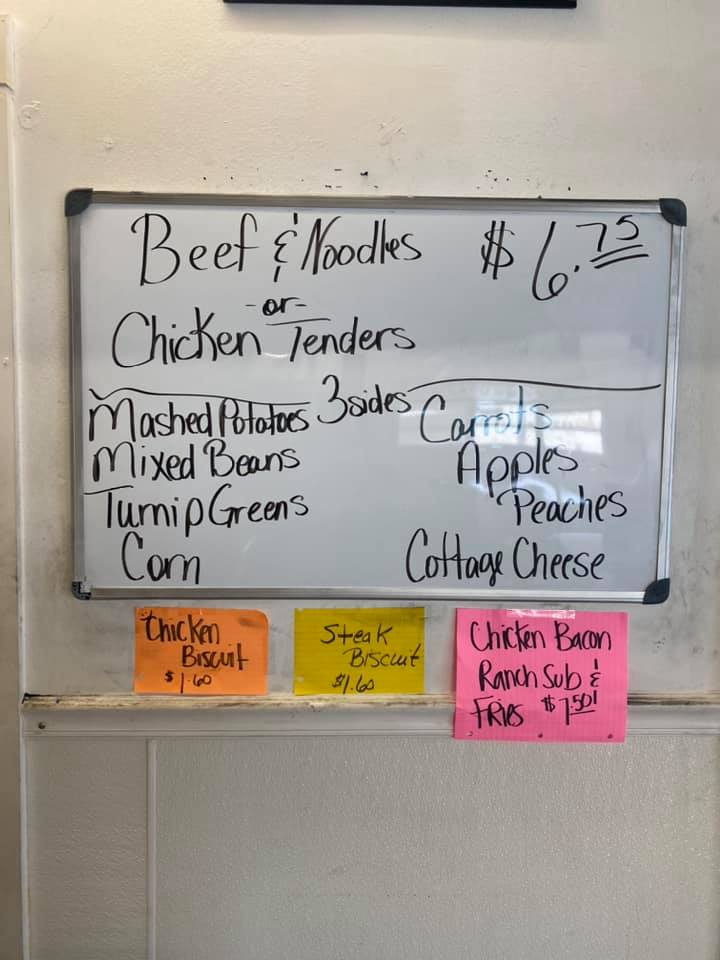 Beef & Noodles $6.75
-or-
Chicken Tenders
3 sides
Mashed Potatoes
Mixed Beans
Turnip Greens
Corn
Carrots
Apples
Peaches
Cottage Cheese
Chicken
Biscuit
$1.60
Steak
Biscuit
$1.60
Chicken Bacon
Ranch Sub &
Fries $7.50!